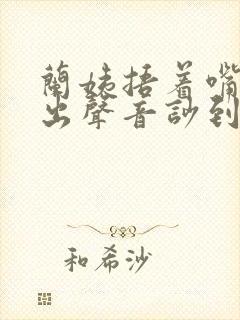 蘭姨捂着嘴
出聲音訬到
和希沙